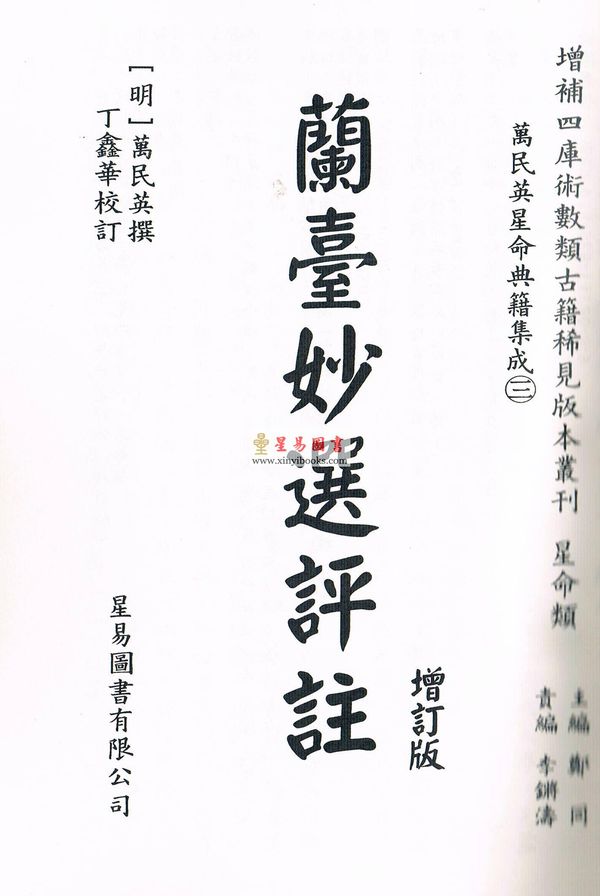 增補四庫術數類古籍稀見版本叢刊 星命類
主編 鄭同
責編 李鏘濤
萬民英星命典籍集成㊂
增訂版
蘭臺妙選評註
[明]萬民英撰
丁鑫華校訂
星易圖書有限公司
星易圖書
www.xinyibooks.com